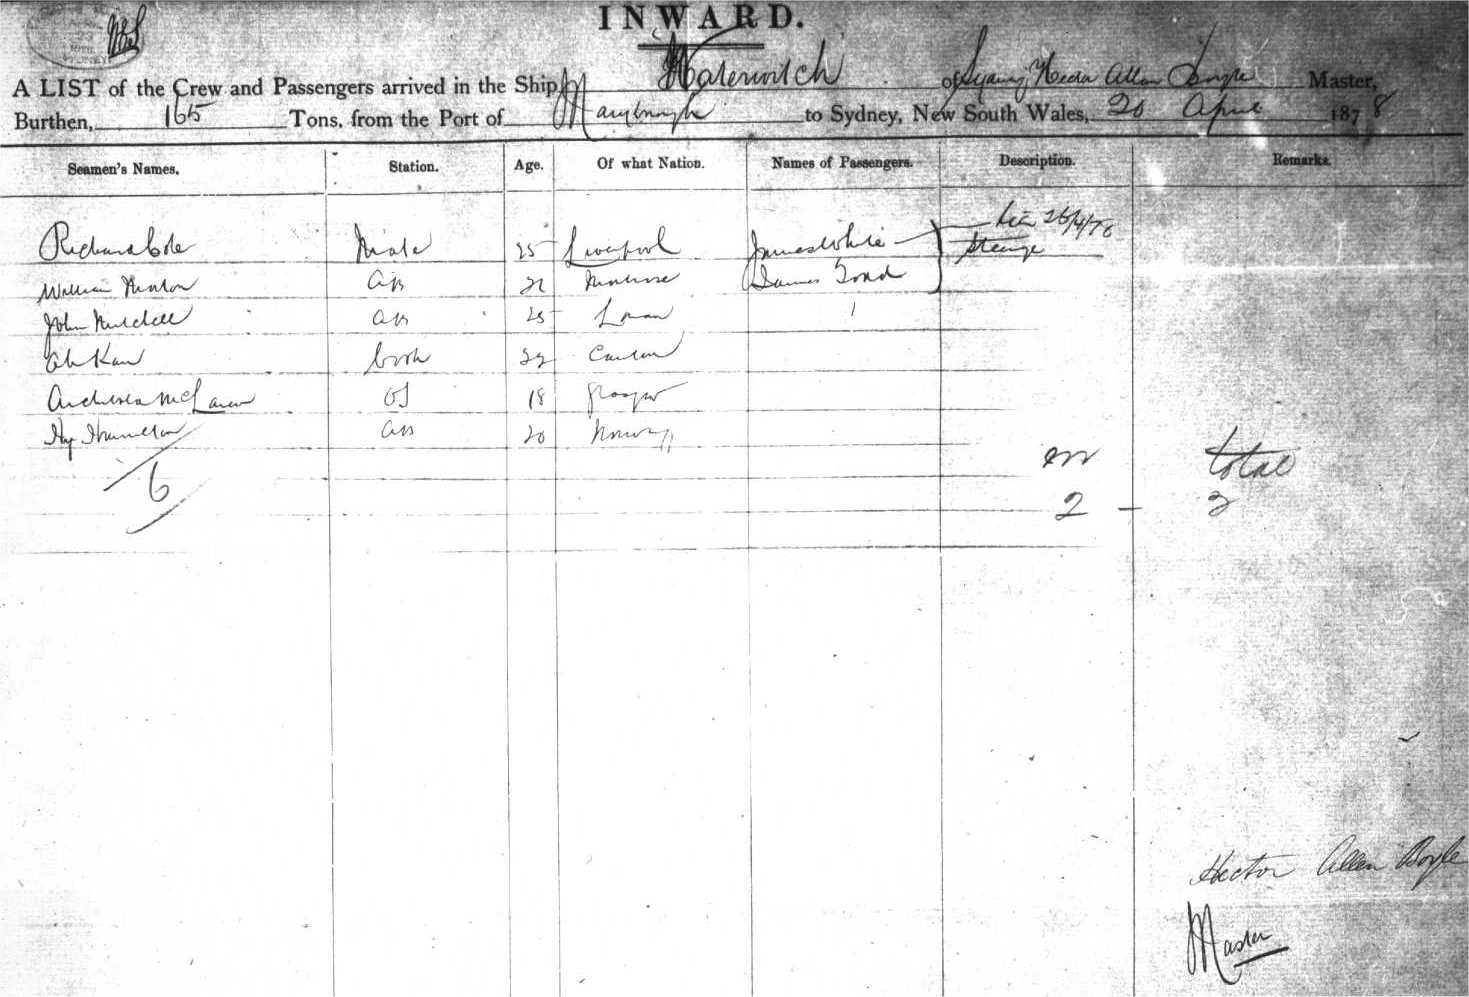 INWARD.
A LIST of the Crew and Passengers arrived in the Ship Waterwitch of Sydney Allan Boyle Master,
Burthen, 165 Tons, from the Port of Maryborough to Sydney, New South Wales, 20 April 1878
Seamen's Names. Station. Age. Of what Nation. Names of Passengers. Description. Remarks.
Richard Cole Mate 25 Liverpool James White
William AB Montrose James Todd Steerage
John Mitchell AB 25
Ah Kan Cook Canton
McLaren OS 18 Glasgow
Hy Hamilton AB 20 Norway
6
total
2 - 2
Hector Allen Boyle
Master